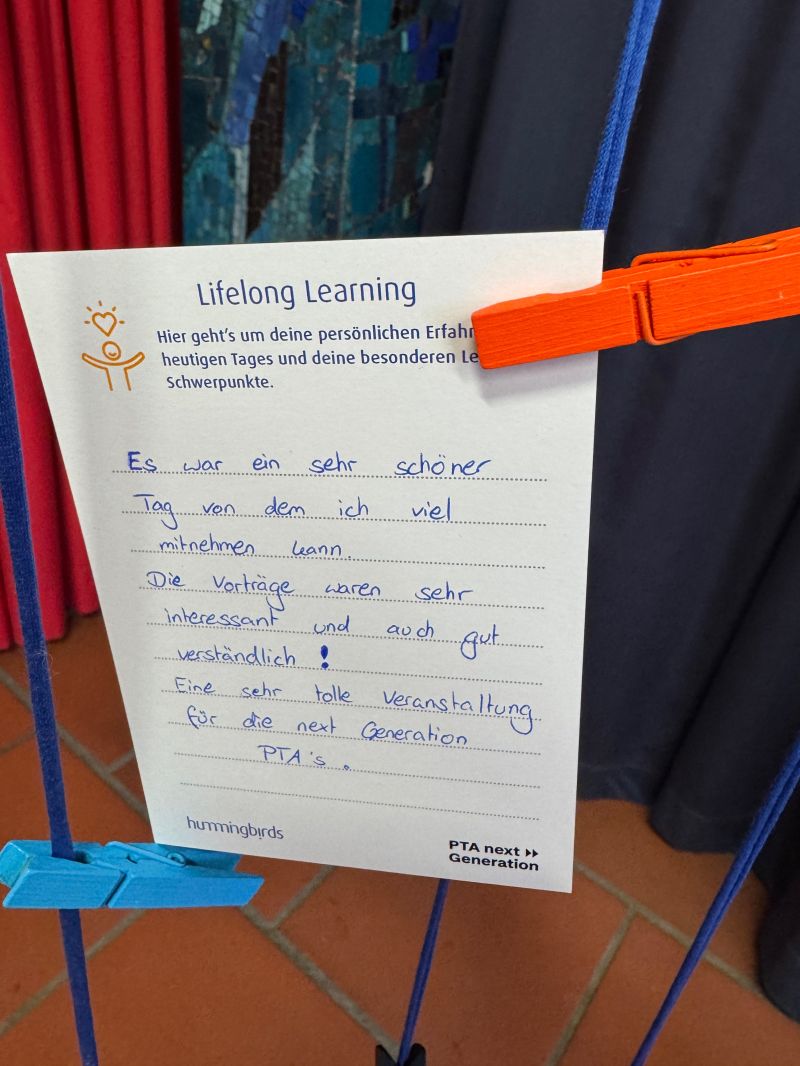 Lifelong Learning
Hier geht's um deine persönlichen
heutigen Tages und deine besonderen
Schwerpunkte.
Es war ein sehr schöner
Tag von dem ich viel
mitnehmen kann.
Die Vorträge waren sehr
interessant und auch gut
verständlich !
Eine sehr tolle Veranstaltung
für die next Generation
PTA's.
hummingbirds
PTA next
Generation